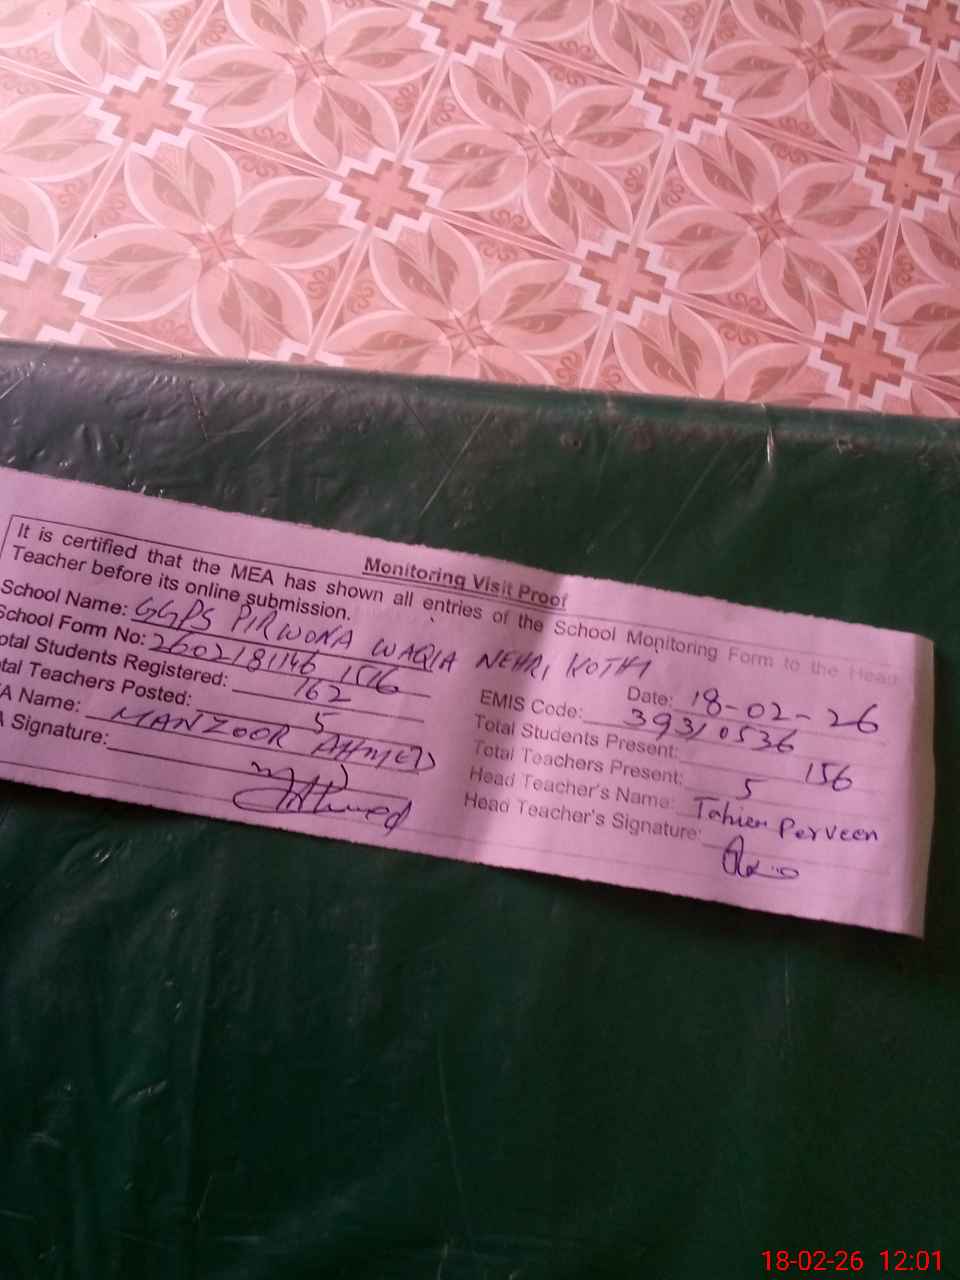 Monitoring Visit Proof
It is certified that the MEA has shown all entries of the School Monitoring Form to the Head
Teacher before its online submission.
School Name: GGPS PIRWONA WAQIA NEHRI KOTHI
School Form No: 2602181146 1516 Date: 18-02-26
otal Students Registered: 162 EMIS Code: 39310536
tal Teachers Posted: 5 Total Students Present: 156
A Name: MANZOOR AHMED Total Teachers Present: 5
A Signature: Ahmed Head Teacher's Name: Tahien Perveen
Head Teacher's Signature:
18-02-26 12:01